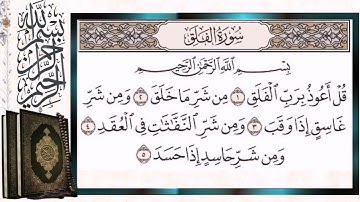 سُورَةُ الفَلَقِ
بِسْمِ اللَّهِ الرَّحْمَٰنِ الرَّحِيمِ
قُلْ أَعُوذُ بِرَبِّ ٱلْفَلَقِ ١ مِن شَرِّ مَا خَلَقَ ٢ وَمِن شَرِّ
غَاسِقٍ إِذَا وَقَبَ ٣ وَمِن شَرِّ ٱلنَّفَّٰثَٰتِ فِى ٱلْعُقَدِ ٤
وَمِن شَرِّ حَاسِدٍ إِذَا حَسَدَ ٥
بسم الله الرحمن الرحيم